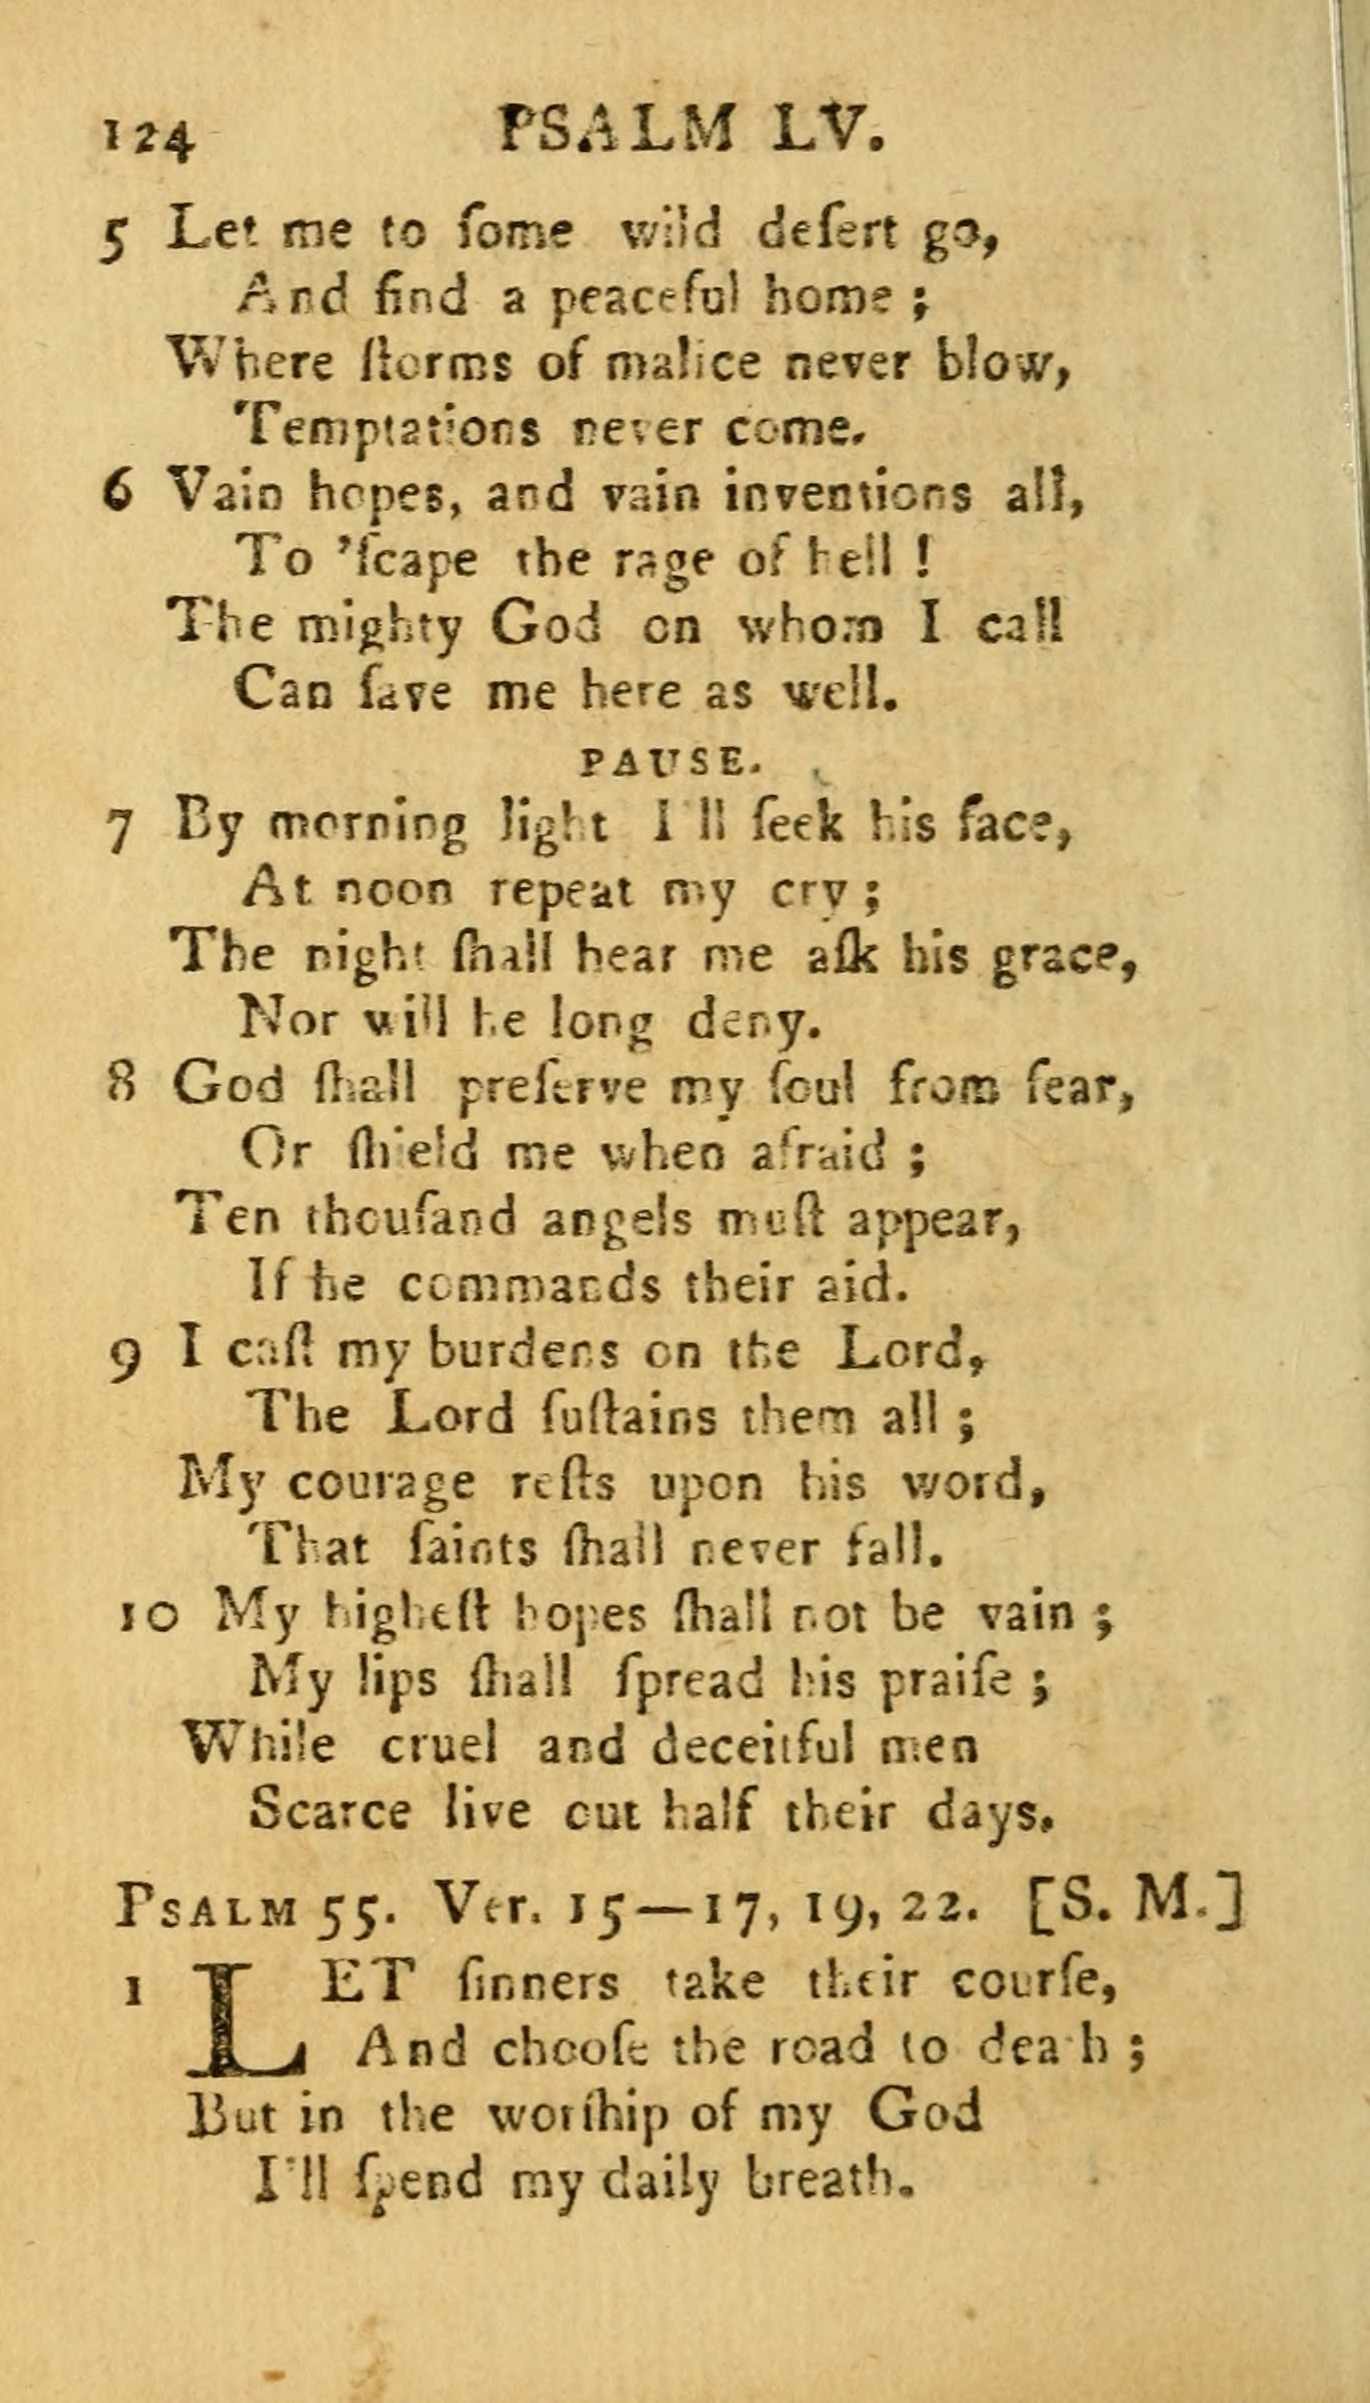 124 PSALM LV.
5 Let me to ſome wild deſert go,
And find a peaceful home ;
Where ſtorms of malice never blow,
Temptations never come.
6 Vain hopes, and vain inventions all,
To 'ſcape the rage of hell !
The mighty God on whom I call
Can ſave me here as well.
PAUSE.
7 By morning light I'll ſeek his face,
At noon repeat my cry ;
The night ſhall hear me aſk his grace,
Nor will he long deny.
8 God ſhall preſerve my ſoul from fear,
Or ſhield me when afraid ;
Ten thouſand angels muſt appear,
If he commands their aid.
9 I caſt my burdens on the Lord,
The Lord ſuſtains them all ;
My courage reſts upon his word,
That ſaints ſhall never fall.
10 My higheſt hopes ſhall not be vain ;
My lips ſhall ſpread his praiſe ;
While cruel and deceitful men
Scarce live out half their days.
PSALM 55. Ver. 15—17, 19, 22. [S. M.]
1 LET ſinners take their courſe,
And chooſe the road to death ;
But in the worſhip of my God
I'll ſpend my daily breath.